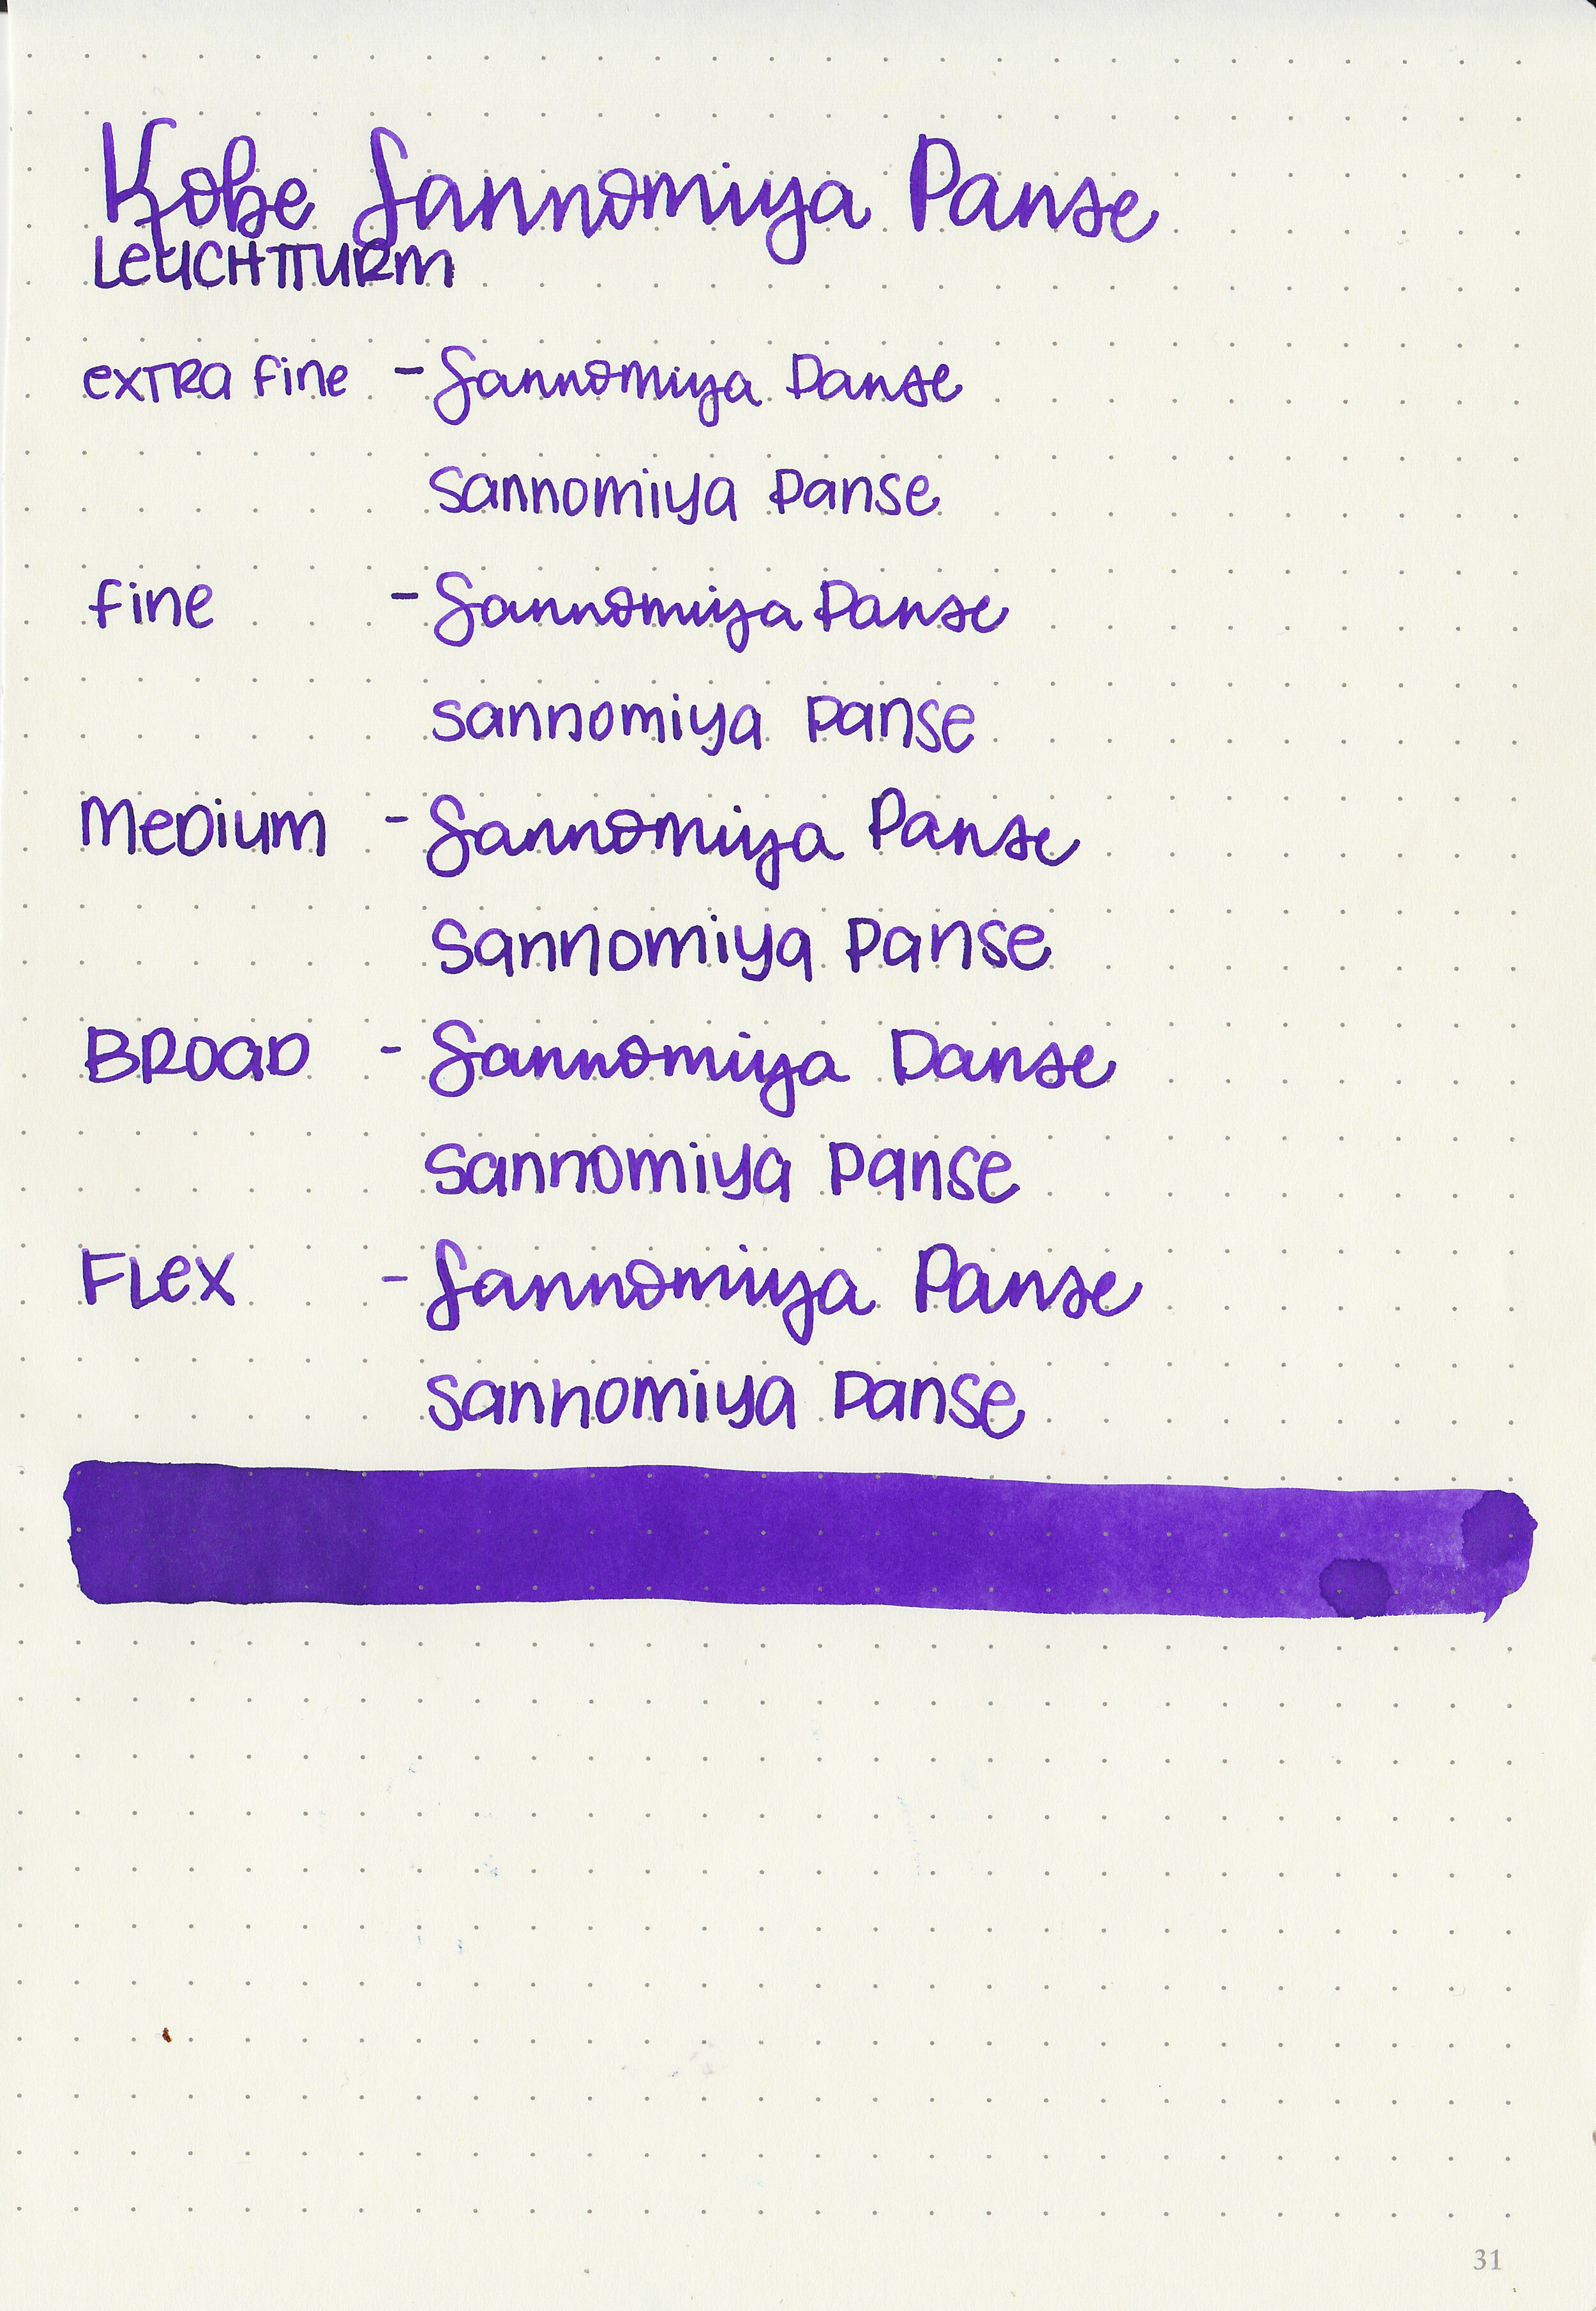 Kobe Sannomiya Panse
Leuchtturm
extra fine - Sannomiya Panse
Sannomiya Panse
fine - Sannomiya Panse
Sannomiya Panse
Medium - Sannomiya Panse
Sannomiya Panse
Broad - Sannomiya Panse
Sannomiya Panse
Flex - Sannomiya Panse
Sannomiya Panse
31